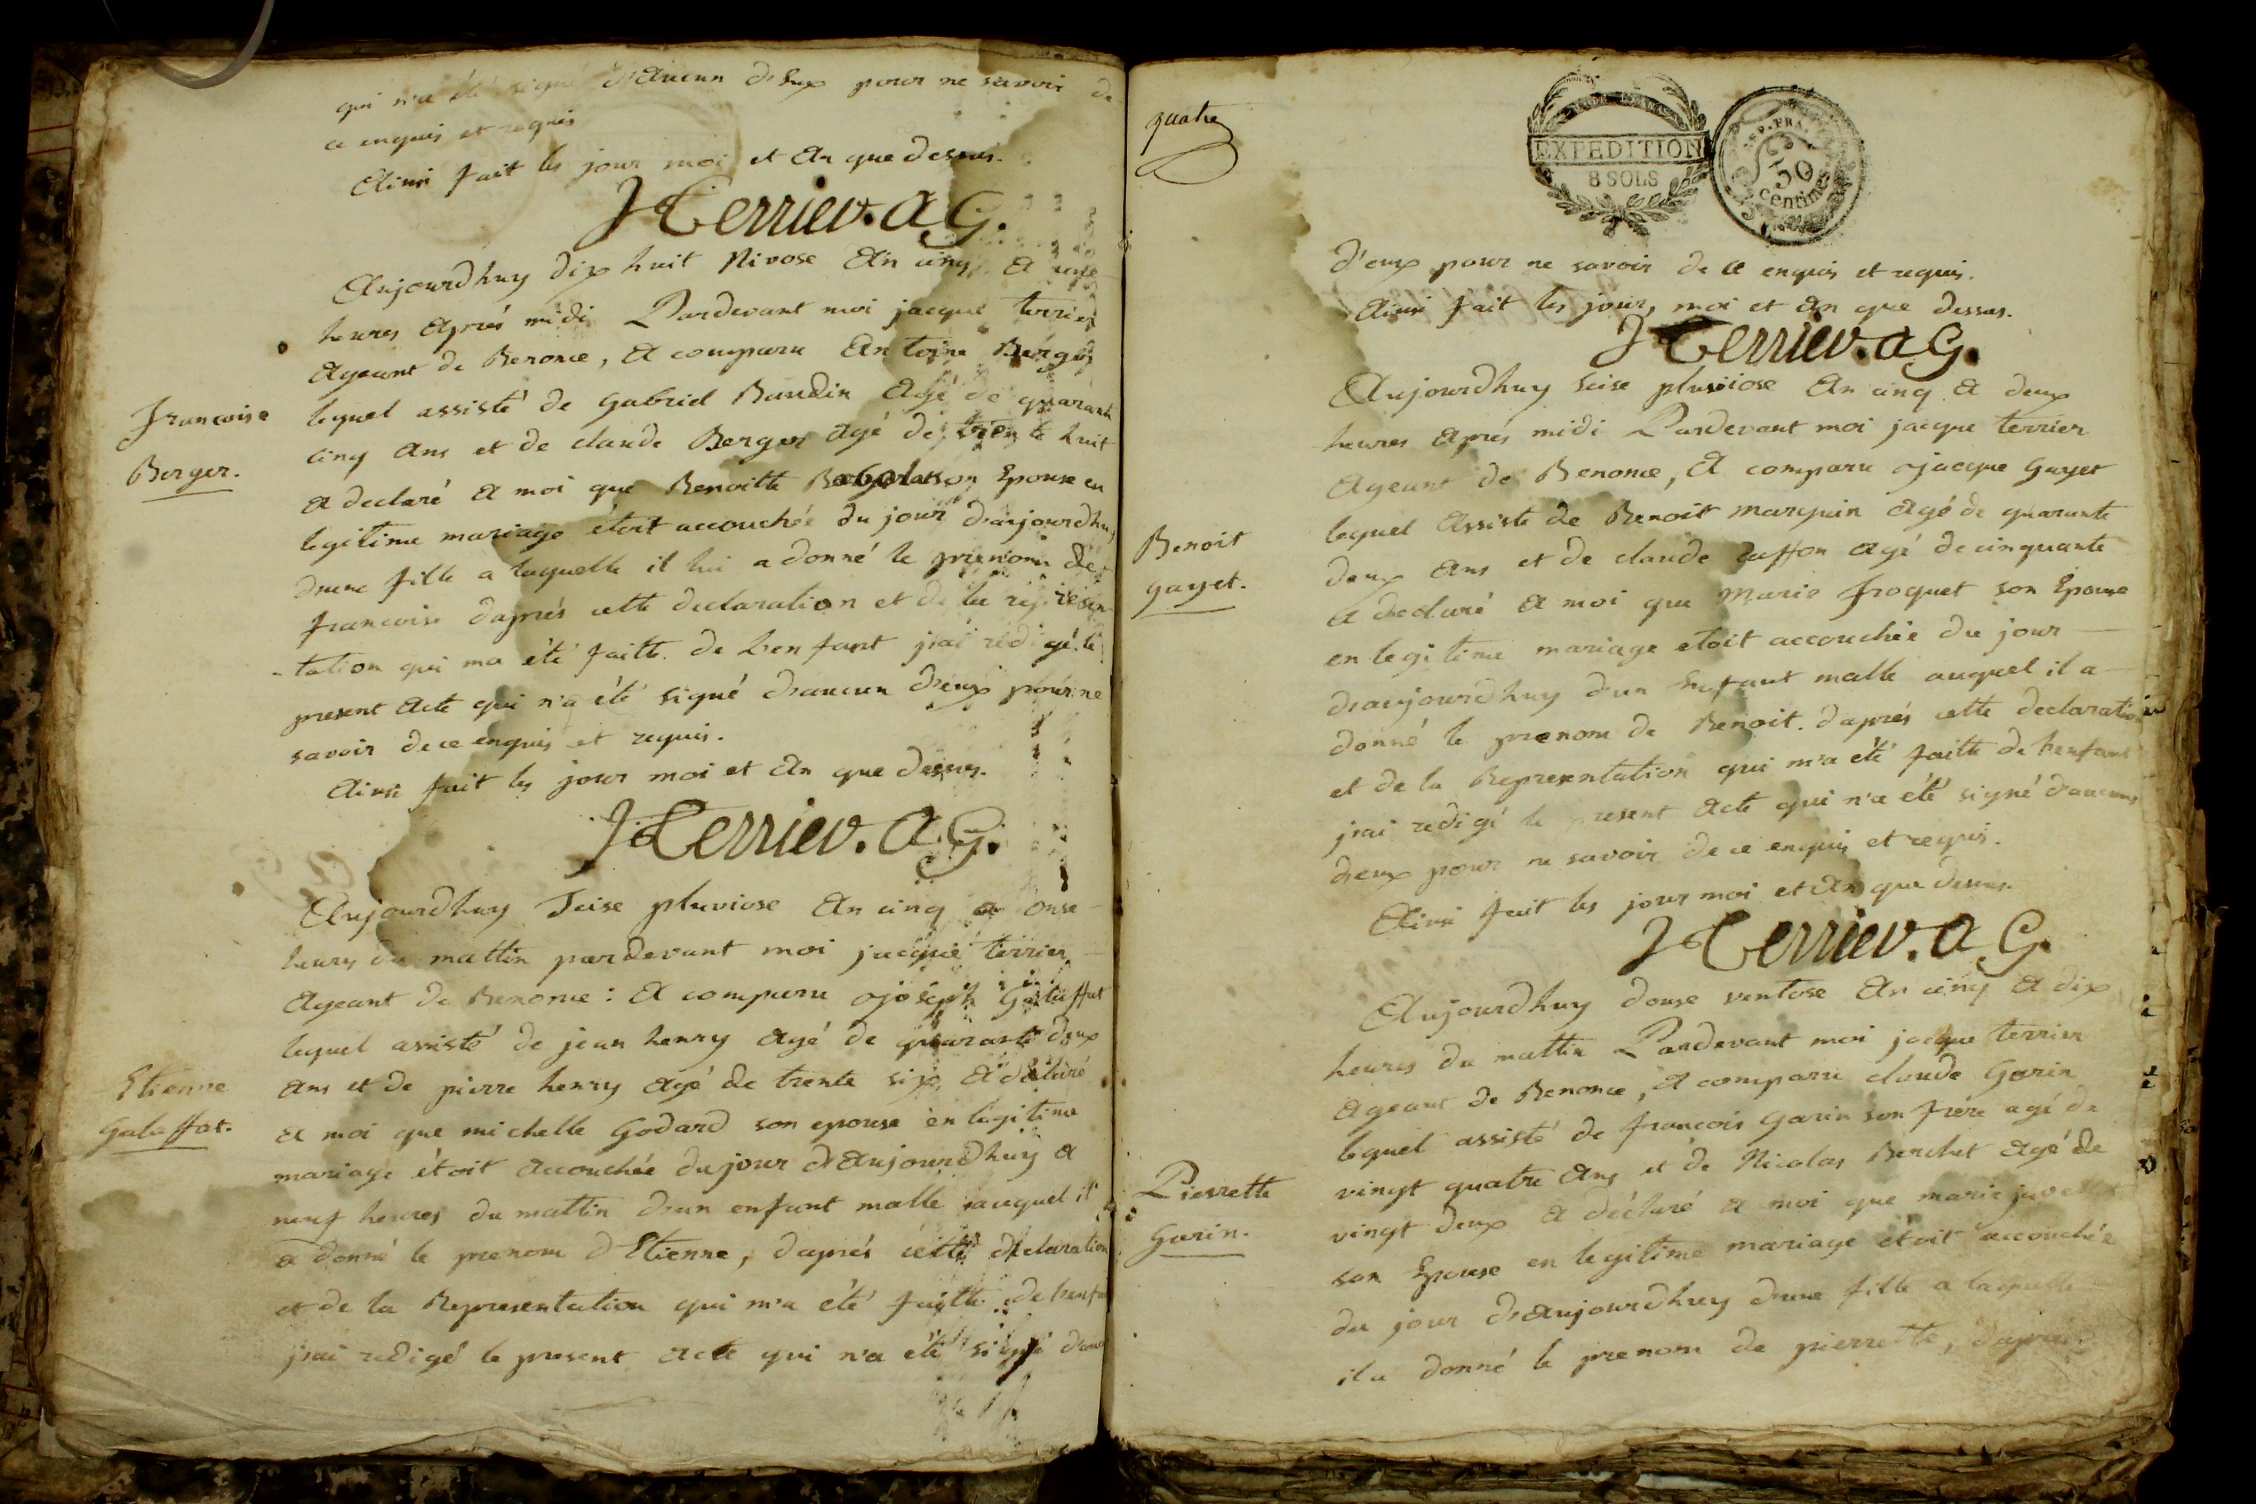 qui n'a été signé d'aucun d'eux pour ne savoir de
ce enquis et requis
Ainsi fait les jour moi et An que dessus.
JTerrier. AG.
Aujourdhuy dix huit Nivose An cinq A une
heures Aprés midi Pardevant moi jacque terrier
Ageant de Benonce, A comparu Antoine Berger
Francoise
Berger.
lequel assisté de Gabriel Baudin Agé de quarante
cinq Ans et de claude Berger agé de trente huit
A declaré A moi que Benoitte son Epouse en
legitime mariage étoit accouchée du jour d'aujourdhuy
d'une fille a laquelle il lui a donné le prenom de
francoise d'aprés cette declaration et de la represen
-tation qui ma été faitte de L'enfant j'ai redigé le
present Acte qui n'a été signé d'aucun d'eux pour ne
savoir de ce enquis et requis.
Ainsi fait les jour moi et An que dessus.
JTerrier. A.G.
Aujourdhuy Seise pluviose An cinq a onse
heures du mattin pardevant moi jacque terrier
Ageant de Benonce : A comparu joseph Galaffat
lequel assisté de jean henry Agé de quarante deux
Etienne
Galaffat.
Ans et de pierre henry Agé de trente six, A declaré
A moi que michelle Godard son epouse en legitime
mariage étoit accouchée du jour d'Aujourdhuy A
neuf heures du mattin d'un enfant malle auquel il
a donné le prenom d'Etienne, d'aprés cette declaration
et de la Representation qui m'a été faitte de L'enfant
j'ai redigé le present Acte qui n'a été signé d'aucun
quatre
EXPEDITION
8 SOLS
REP. FRA.
50
Centimes
d'eux pour ne savoir de ce enquis et requis.
Ainsi fait les jour, moi et An que dessus.
JTerrier. AG.
Aujourdhuy Seise pluviose An cinq A deux
heures Aprés midi Pardevant moi jacque terrier
Ageant de Benonce, A comparu jacque Gayet
Benoit
gayet.
lequel Assisté de Benoit marquin Agé de quarante
deux Ans et de claude caffon Agé de cinquante
A declaré A moi que Marie froquet son Epouse
en legitime mariage etoit accouchée du jour
d'aujourdhuy d'un Enfant malle auquel il a
donné le prenom de Benoit. d'aprés cette declaration
et de la Representation qui m'a été faitte de L'enfant
j'ai redigé le present Acte qui n'a été signé d'aucuns
d'eux pour ne savoir de ce enquis et requis.
Ainsi fait les jour moi et An que dessus.
JTerrier. A G.
Aujourdhuy douse ventose An cinq A dix
heures du mattin Pardevant moi jacque terrier
Ageant de Benonce, A comparu claude Garin
lequel assisté de francois Garin son frére agé de
Pierrette
Garin.
vingt quatre Ans et de Nicolas Berchet Agé de
vingt deux A déclaré A moi que marie
son Epouse en legitime mariage étoit accouchée
du jour d'Aujourdhuy d'une fille a laquelle
il a donné le prenom de pierrette, d'aprés